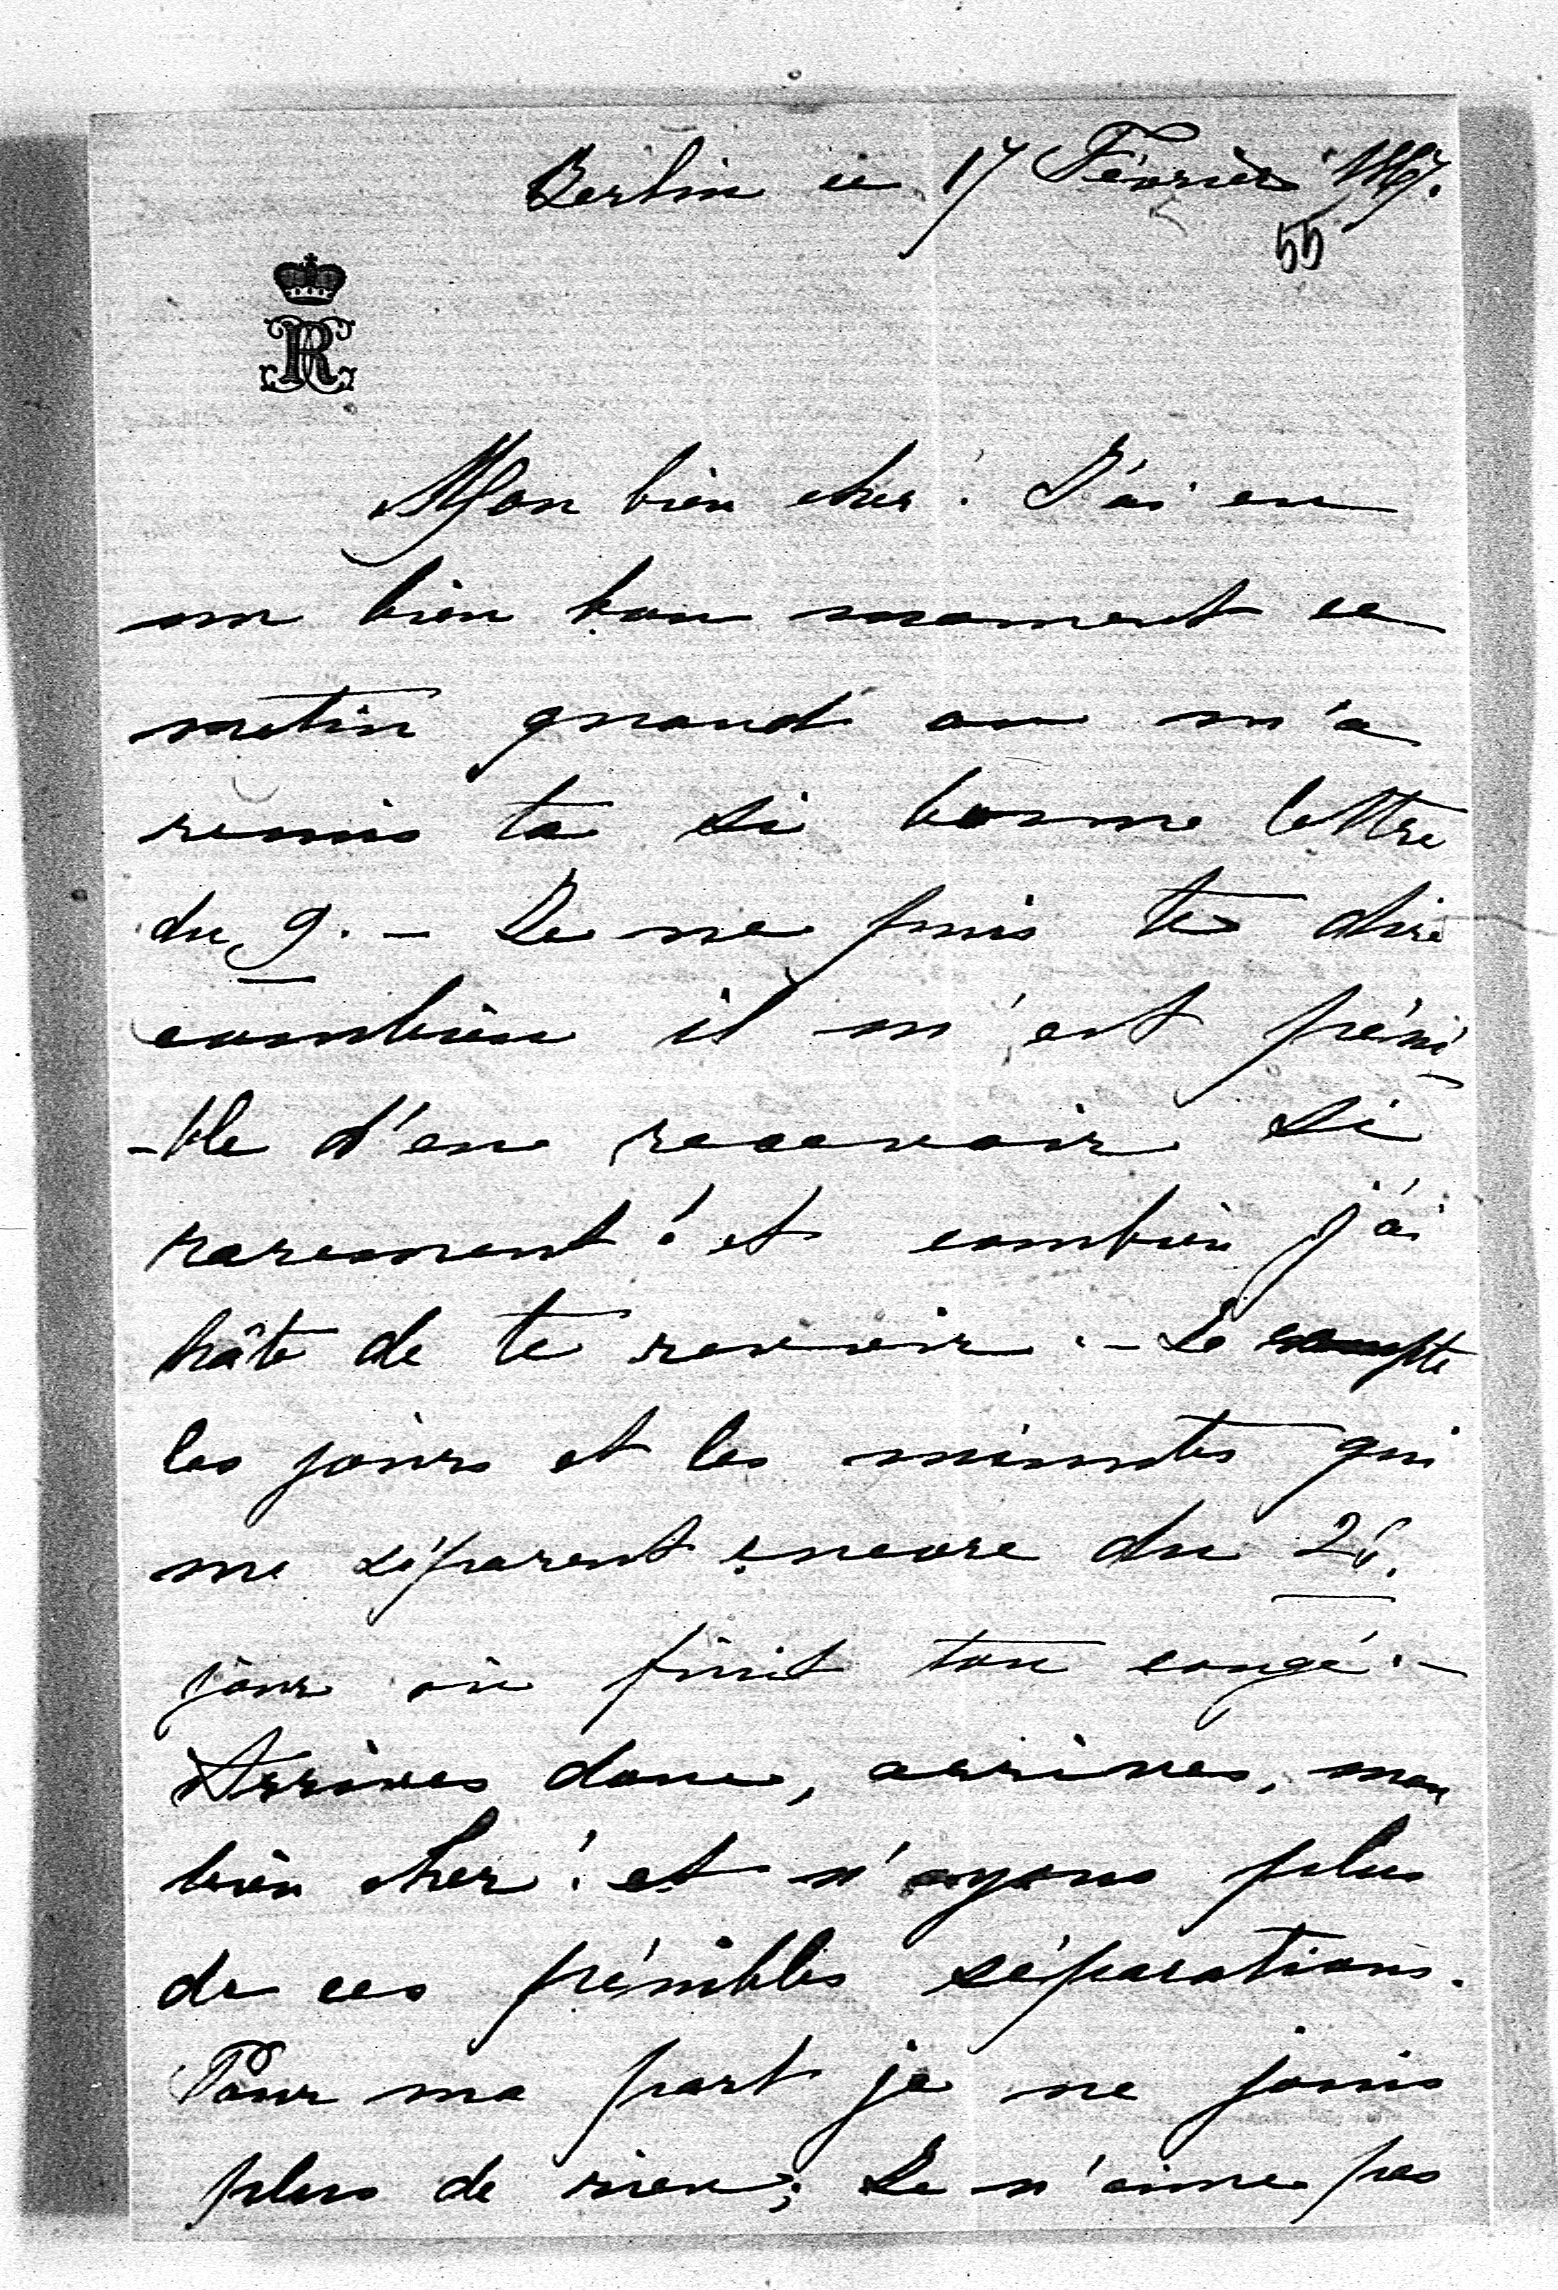 Berlin ce 17 Février 1867.
55
Mon bien cher! J'ai eu
un bien bon moment ce
matin quand on m'a
remis ta si bonne lettre
du 9. – Je ne puis te dire
combien il m'est péni-
-ble d'en recevoir si
rarement! et combien j'ai
hâte de te revoir. – Je compte
les jours et les minutes qui
me séparent encore du
jour où finit ton congé. –
Arrives donc, arrives, mon
bien cher! et n'ayons plus
de ces pénibles séparations.
Pour ma part je ne jouis
plus de rien; Je n'aime pas